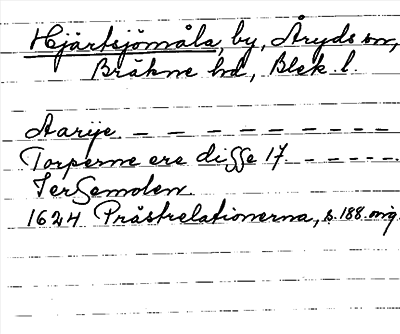 Hjärtsjömåla, by, Åryds sn,
Bräkne hd, Blek. l.
Aarije - - - - - - - - -
Torperne ere disse 17 - - - - -
Jersemolen
1624 Prästrelationerna, s. 188. orig